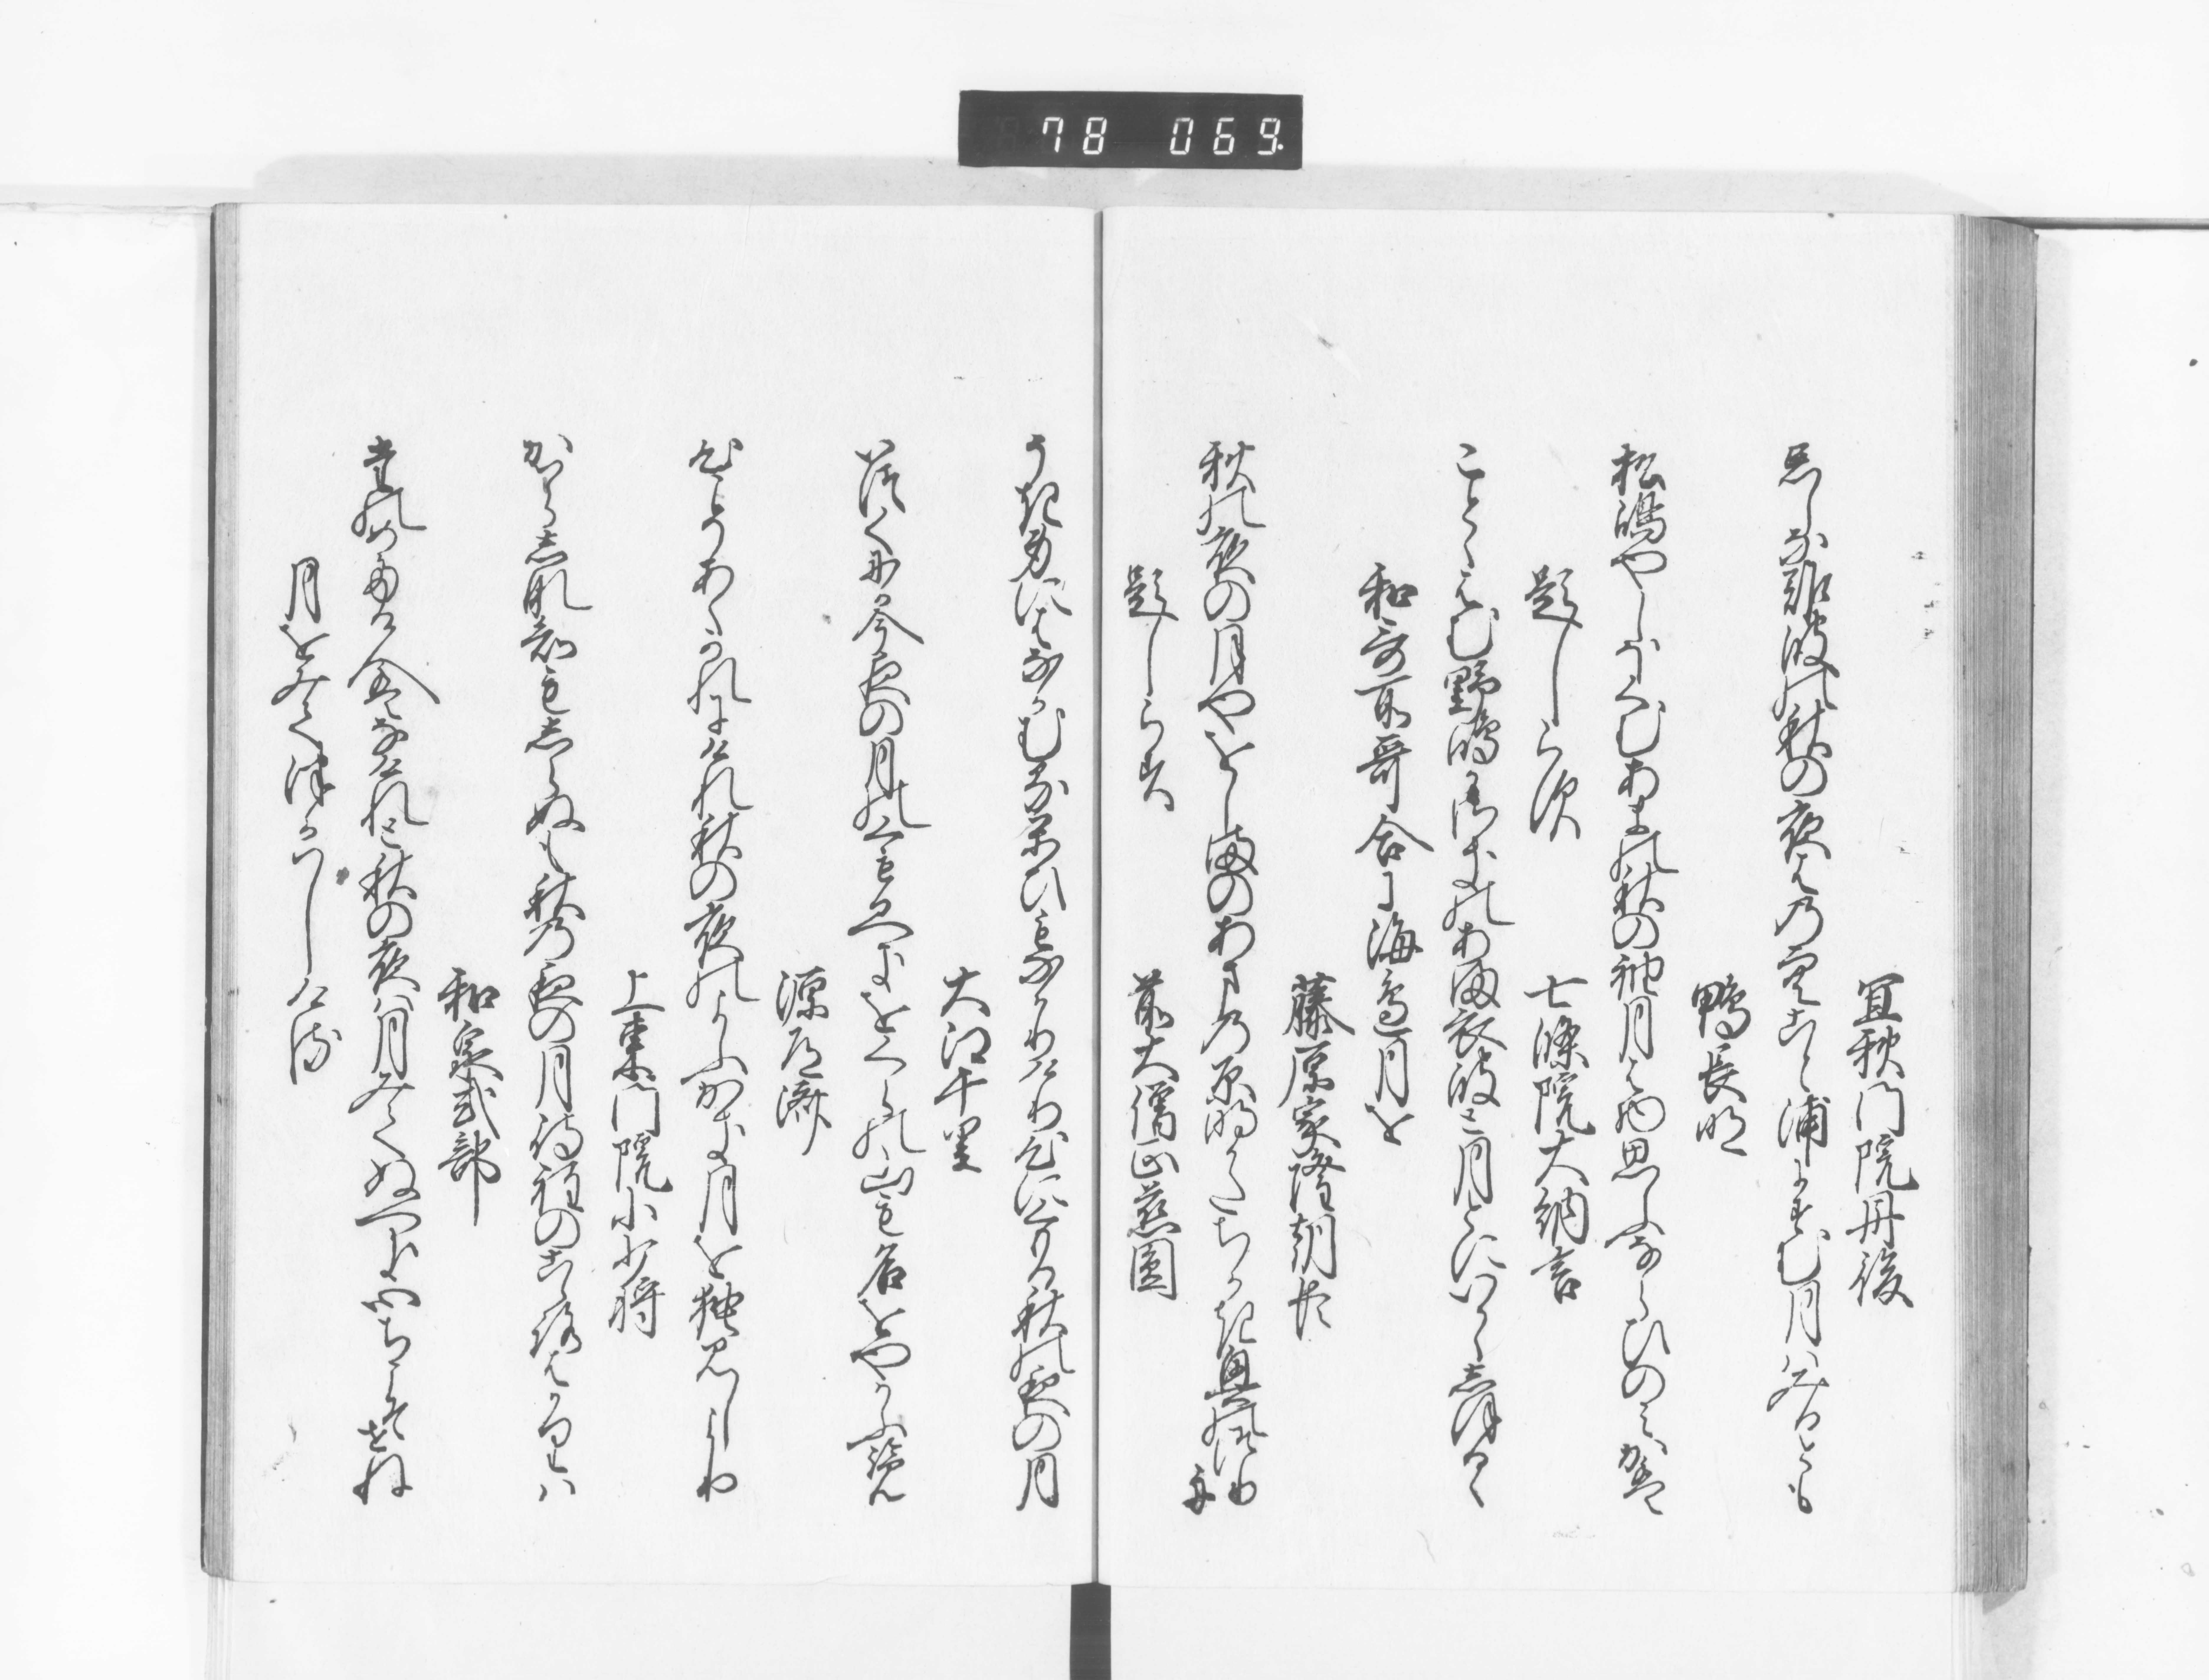 78 069
宜秋門院丹後
忘しな難波の秋の夜はの空こと浦にすむ月はみるとも
鴨長明
松嶋やしほくむあまの秋の袖月は物思ふならひのみかは
題しらす 七條院大納言
ことゝはむ野嶋かさきのあま衣波と月とにいかゝしほるゝ
和哥所哥合に海邊月を
藤原家隆朝臣
秋の夜の月やをしまのあまの原明かたちかき奥の釣舟
題しらす 前大僧正慈圓
うき身にはなかむるかひもなかりけり心にくもる秋の夜の月
大江千里
いつくにか今夜の月のくもるへきをくらの山も名をやかふ覧
源道濟
心こそあくかれにけれ秋の夜の夜ふかき月を独みしより
上東門院小少将
かはらしな知もしらぬも秋の夜の月待程のこゝろはかりは
和泉式部
たのめたる人はなけれと秋の夜は月みてぬへき心ちこそせね
月をみてつかはしける